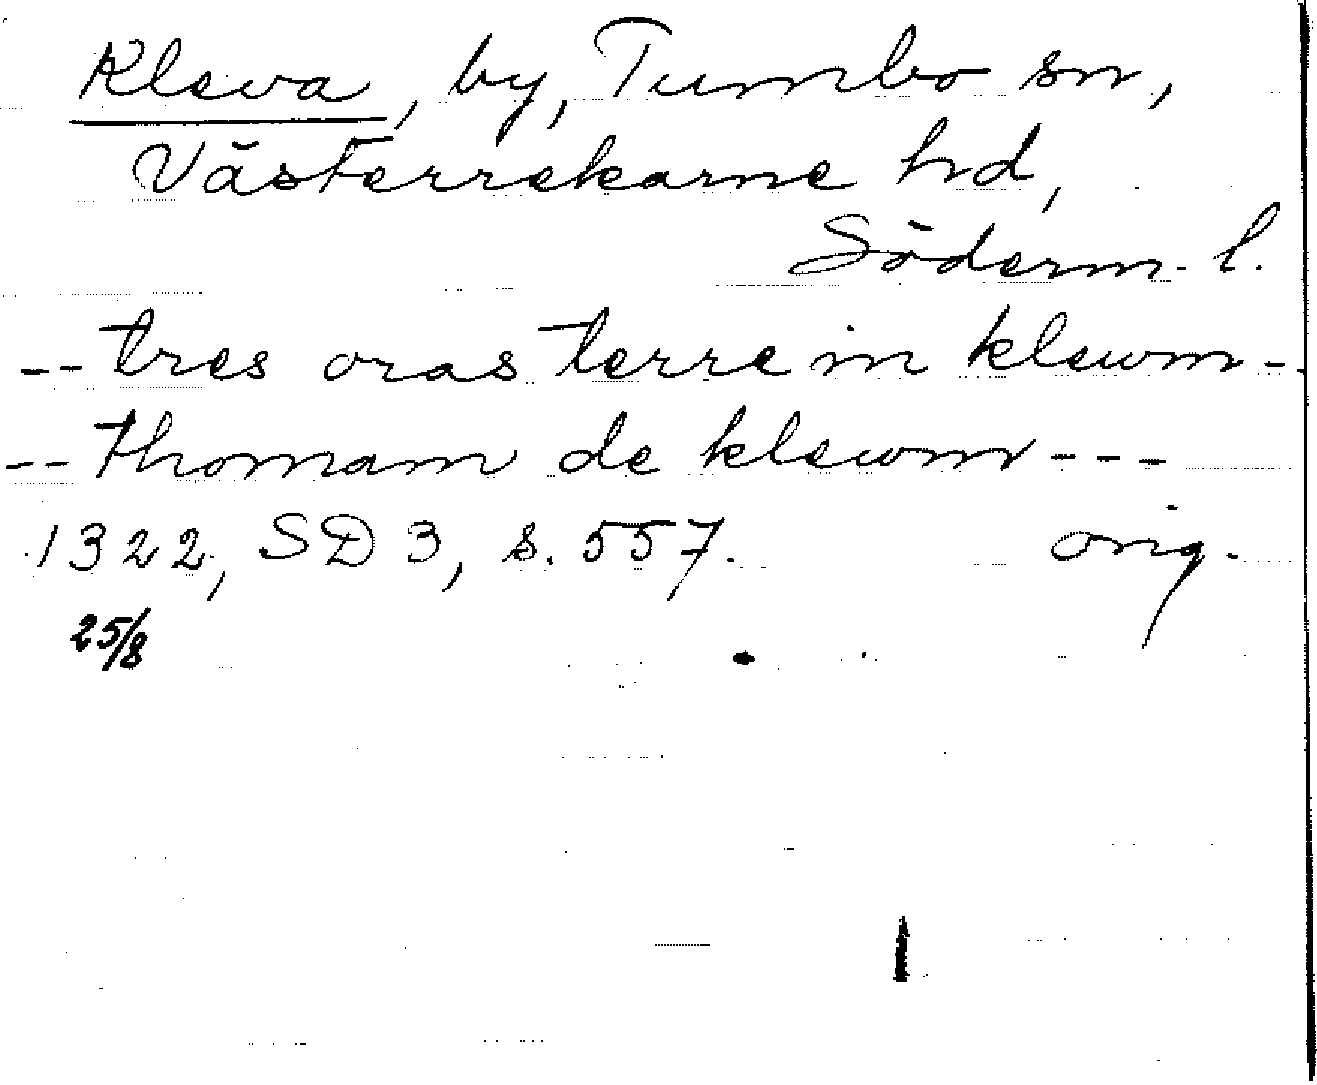 Kleva, by, Tumbo sn,
Västerrekarne hd,
Söderm. l.
-- tres oras terre in klewm -
-- thomam de klewm ---
1322, SD 3, s. 557. orig.
25/8